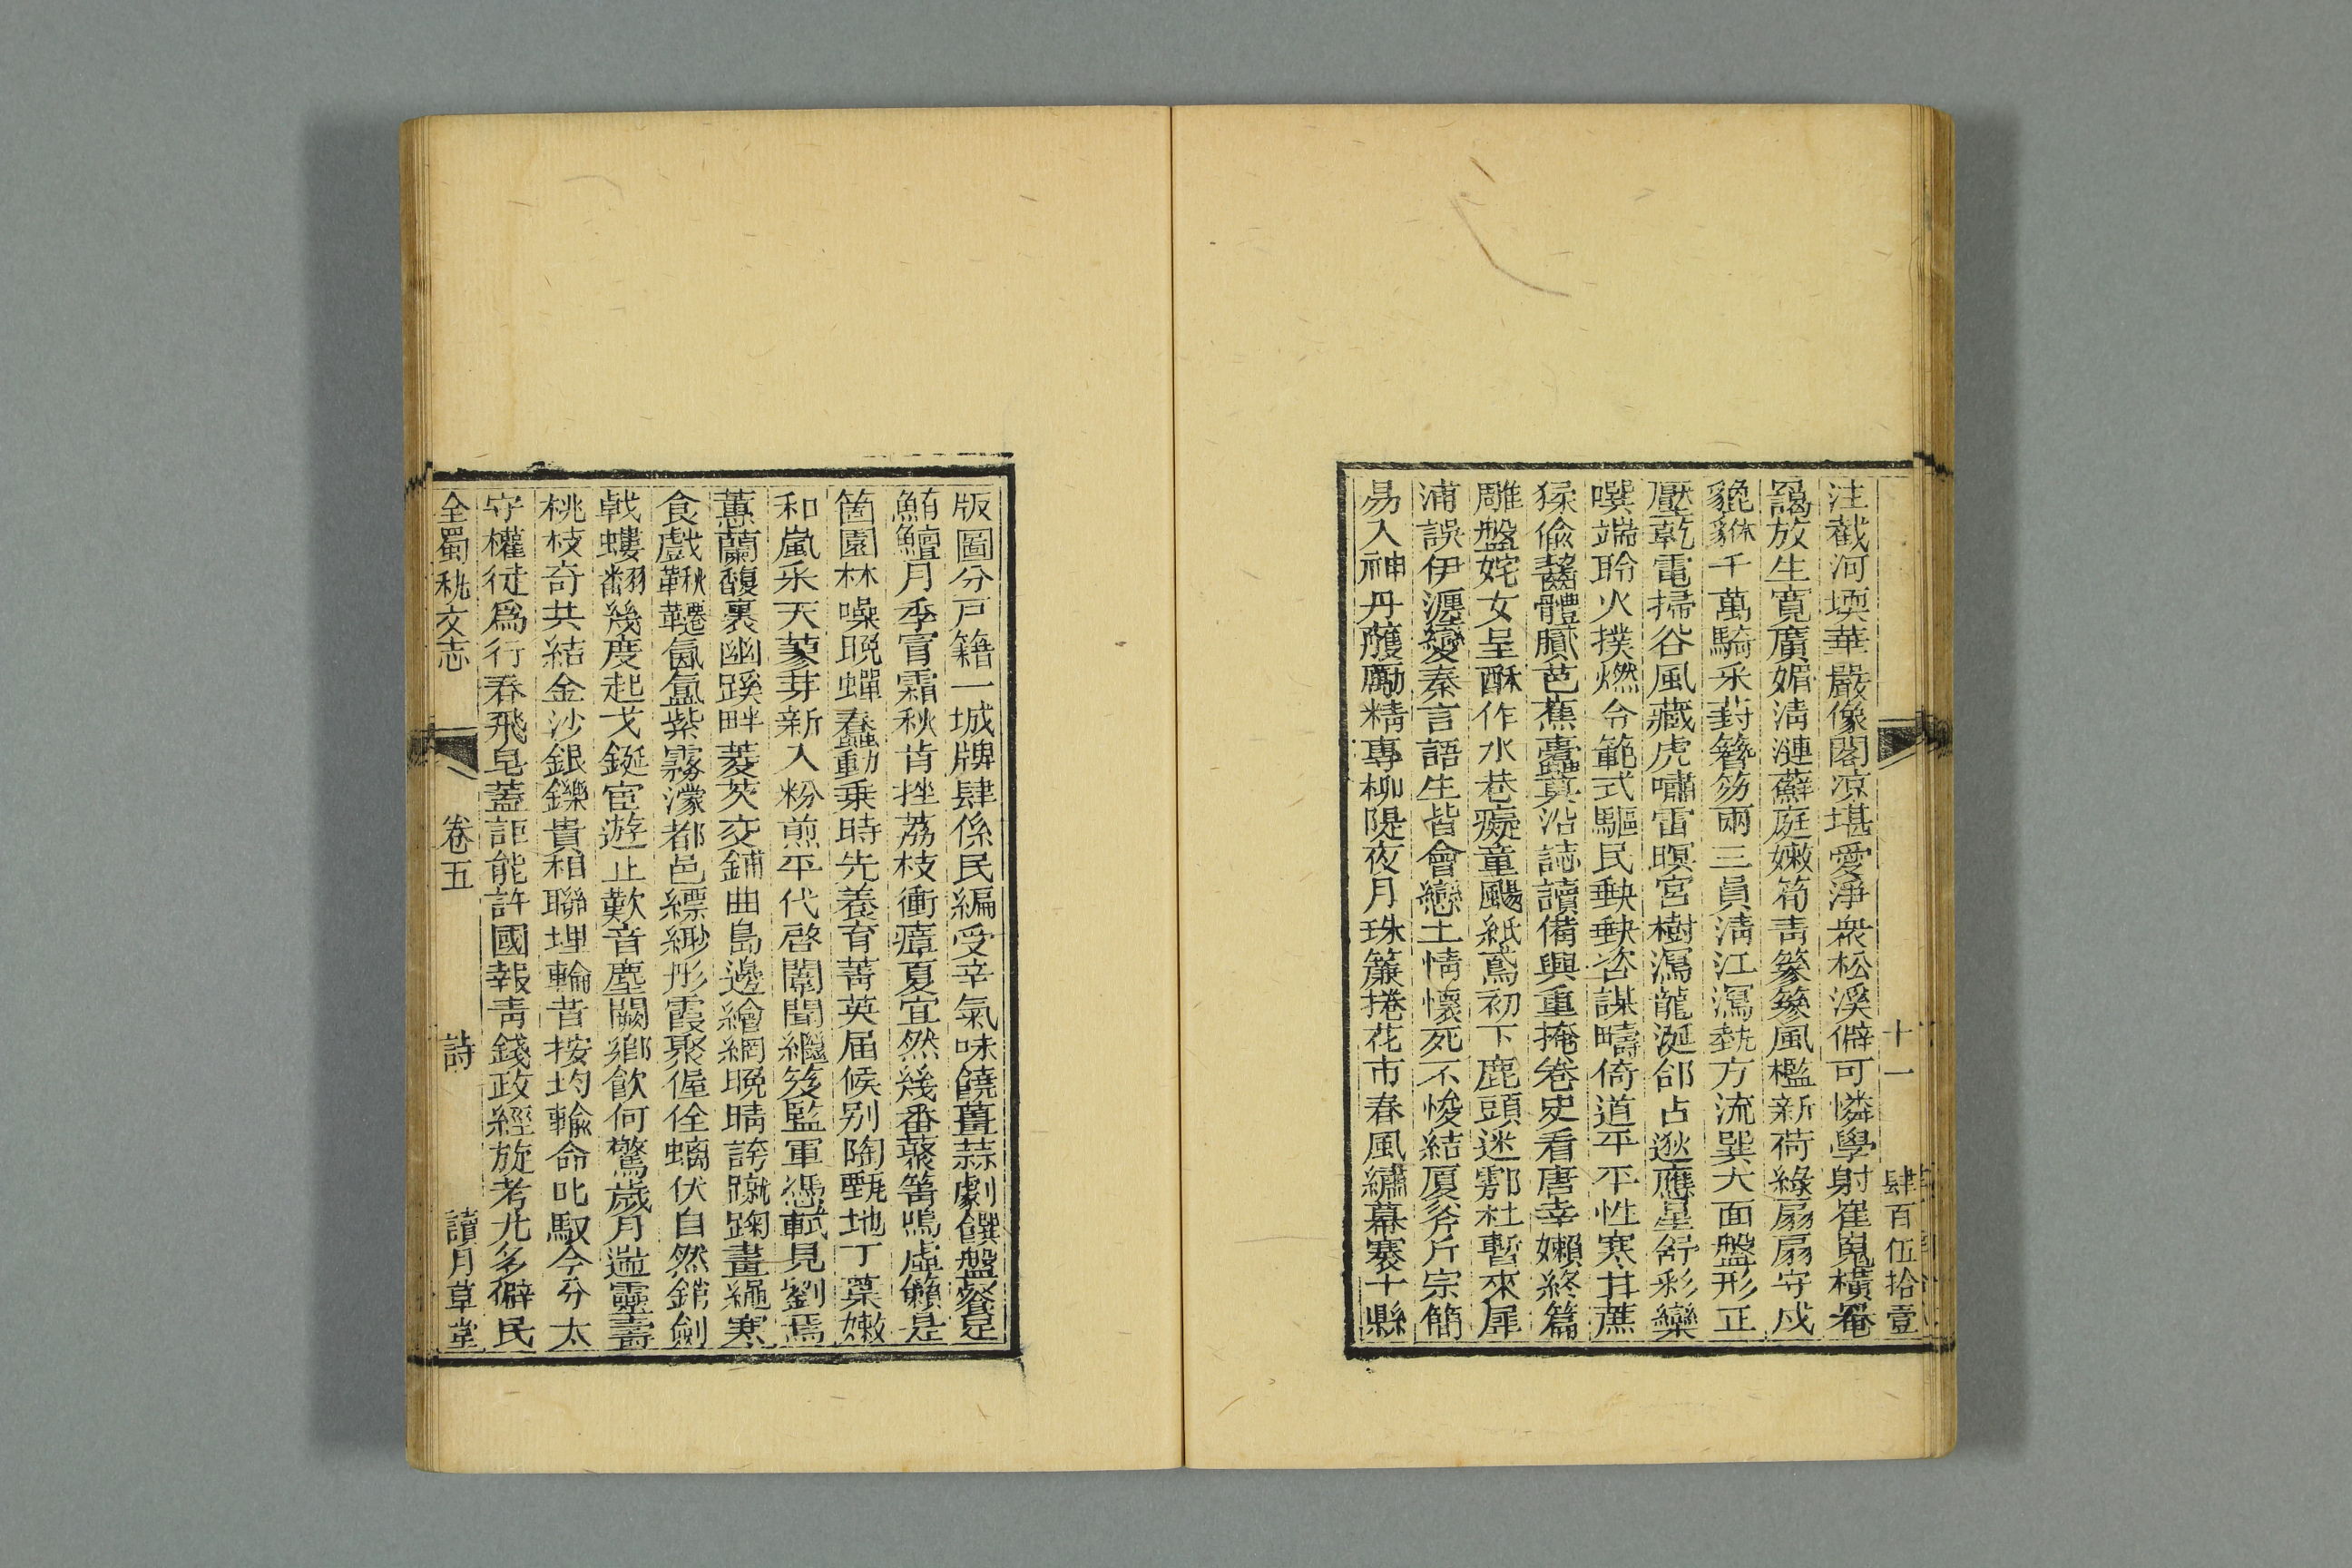 十一
肆百伍拾壹
注截河堧華嚴像閣凉堪愛淨衆松溪僻可憐學射崔嵬橫罨
靄放生寛廣媚淸漣蘚庭嫩筍靑篸篸風檻新荷綠扇扇守戍
貔貅千萬騎采葑簪笏兩三員淸江瀉埶方流巽大面盤形正
壓乾電掃谷風藏虎嘯雷暝宮樹瀉龍涎郃占逖應星舒彩欒
噀端聆火撲燃令範式驅民軮軮咨謀疇倚道平平性寒甘蔗
猱偷齧體膩芭蕉蠹蕒沿誌讀備興重掩卷史看唐幸嬾終篇
雕盤姹女呈酥作水巷癡童颺紙鳶初下鹿頭迷鄠杜暫來犀
浦誤伊瀍變秦言語生皆會戀土情懷死不悛結厦斧斤宗簡
易入神丹雘勵精專柳隄夜月珠簾捲花市春風繡幕褰十縣
版圖分戸籍一城牌肆係民編受辛氣味饒薑蒜劇饌盤餐足
鮪鱣月季冐霜秋肯挫荔枝衝瘴夏宜然幾番藂篳鳴虛籟是
箇園林噪晩蟬蠢動乗時先養育菁英届候别陶甄地丁葉嫩
和嵐采天蓼芽新入粉煎平代啓闢聞繼笈監軍憑軾見劉焉
蕙蘭馥裏幽蹊畔菱芡交鋪曲島邊繪網晩晴誇蹴踘畫繩寒
食戲鞦韆氤氳紫霧濛都邑縹緲彤霞聚偓佺螭伏自然銷劍
戟螻翻幾度起戈鋋宦遊止歎音塵闕鄉飮何驚歲月遄靈壽
桃枝奇共結金沙銀鑠貴相聯埋輪昔按均輸命叱馭今分太
守權徒爲行春飛皂蓋詎能許國報靑錢政經旋考尤多僻民
全蜀秇文志
卷五
詩
讀月草堂